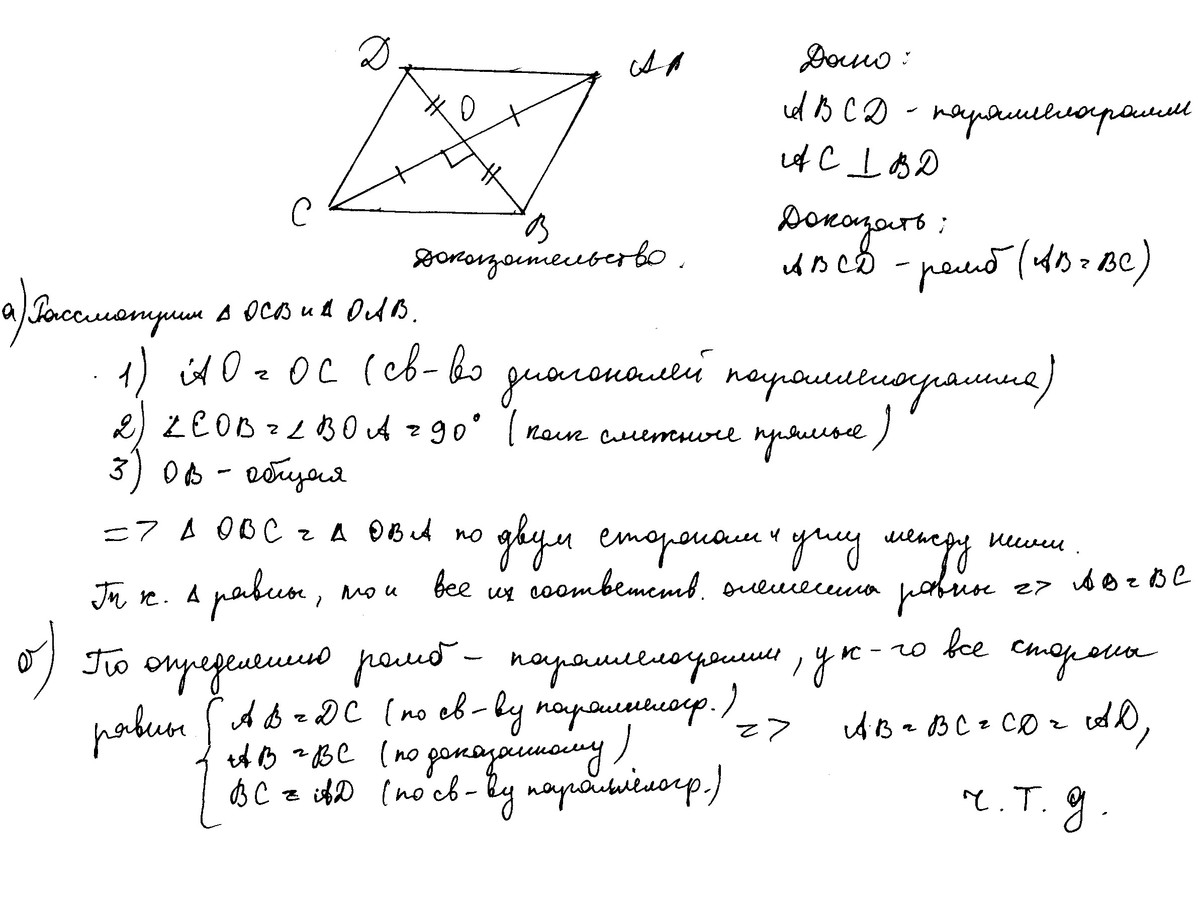 D
А
O
C
B
Дано:
ABCD - параллелограмм
AC ⊥ BD
Доказать:
ABCD - ромб (AB = BC)
Доказательство.
а) Рассмотрим Δ OCB и Δ OAB.
1) AO = OC (св-во диагоналей параллелограмма)
2) ∠COB = ∠BOA = 90° (как смежные прямые)
3) OB - общая
=> Δ OBC = Δ OBA по двум сторонам и углу между ними.
Т. к. Δ равны, то и все их соответств. элементы равны => AB = BC
б) По определению ромб - параллелограмм, у к-го все стороны
равны
AB = DC (по св-ву параллелогр.)
AB = BC (по доказанному)
BC = AD (по св-ву параллелогр.)
=> AB = BC = CD = AD,
ч. т. д.